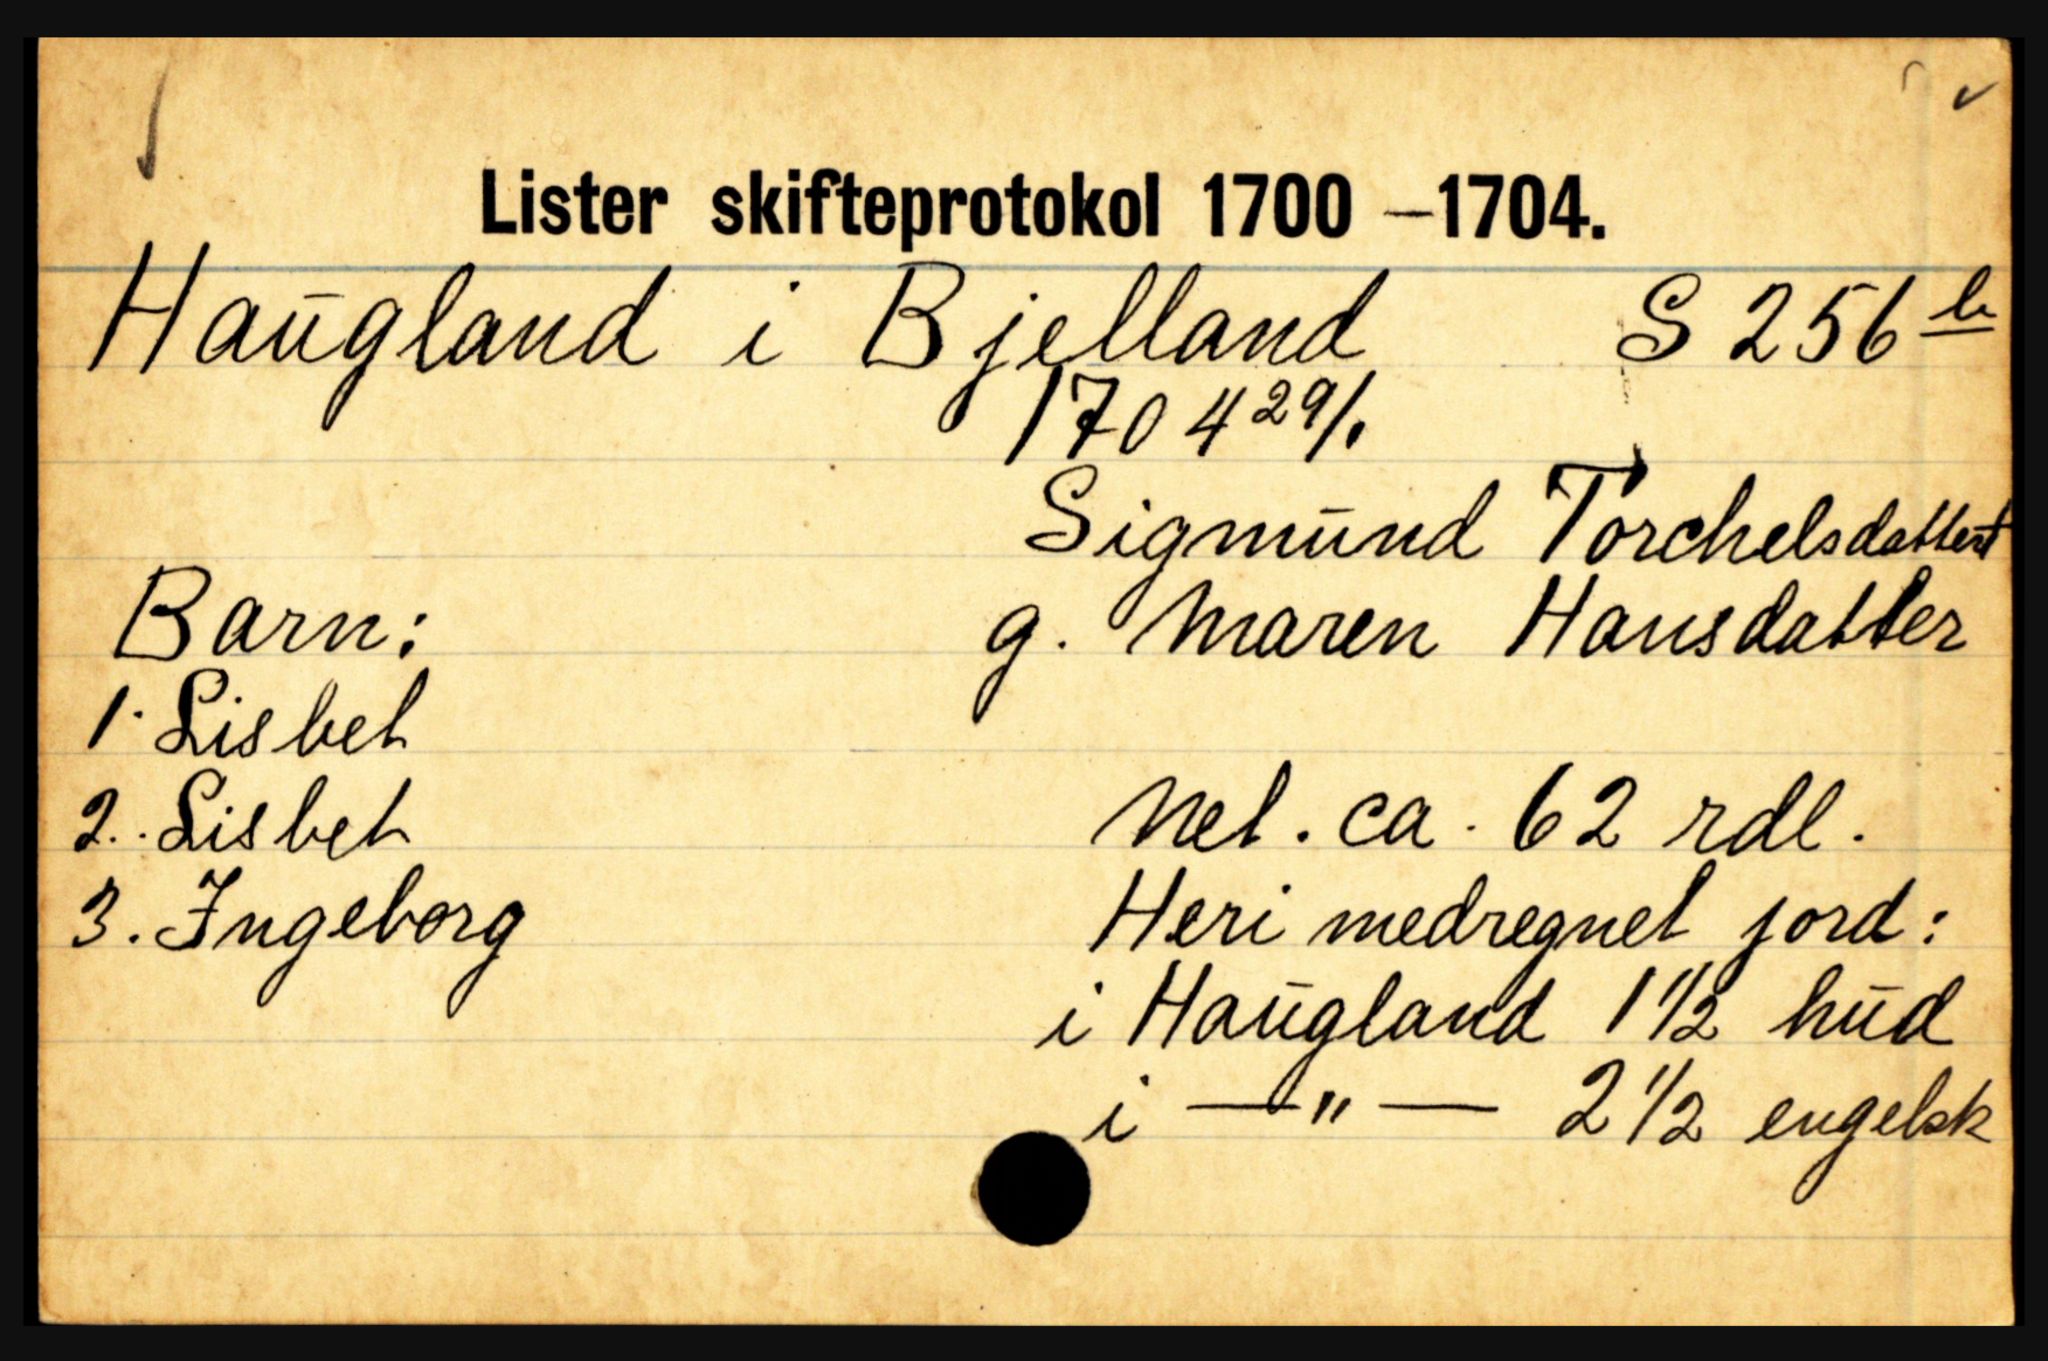 Lister skifteprotokol 1700 – 1704.
Haugland i Bjelland S 256 b
1704 29/1
Sigmund Torchelsdatter †
Barn: g. Maren Hansdatter
1. Lisbet
2. Lisbet Net. ca. 62 rdl.
3. Ingeborg Heri medregnet jord:
i Haugland 1 1/2 hud
i — " — 2 1/2 engelsk